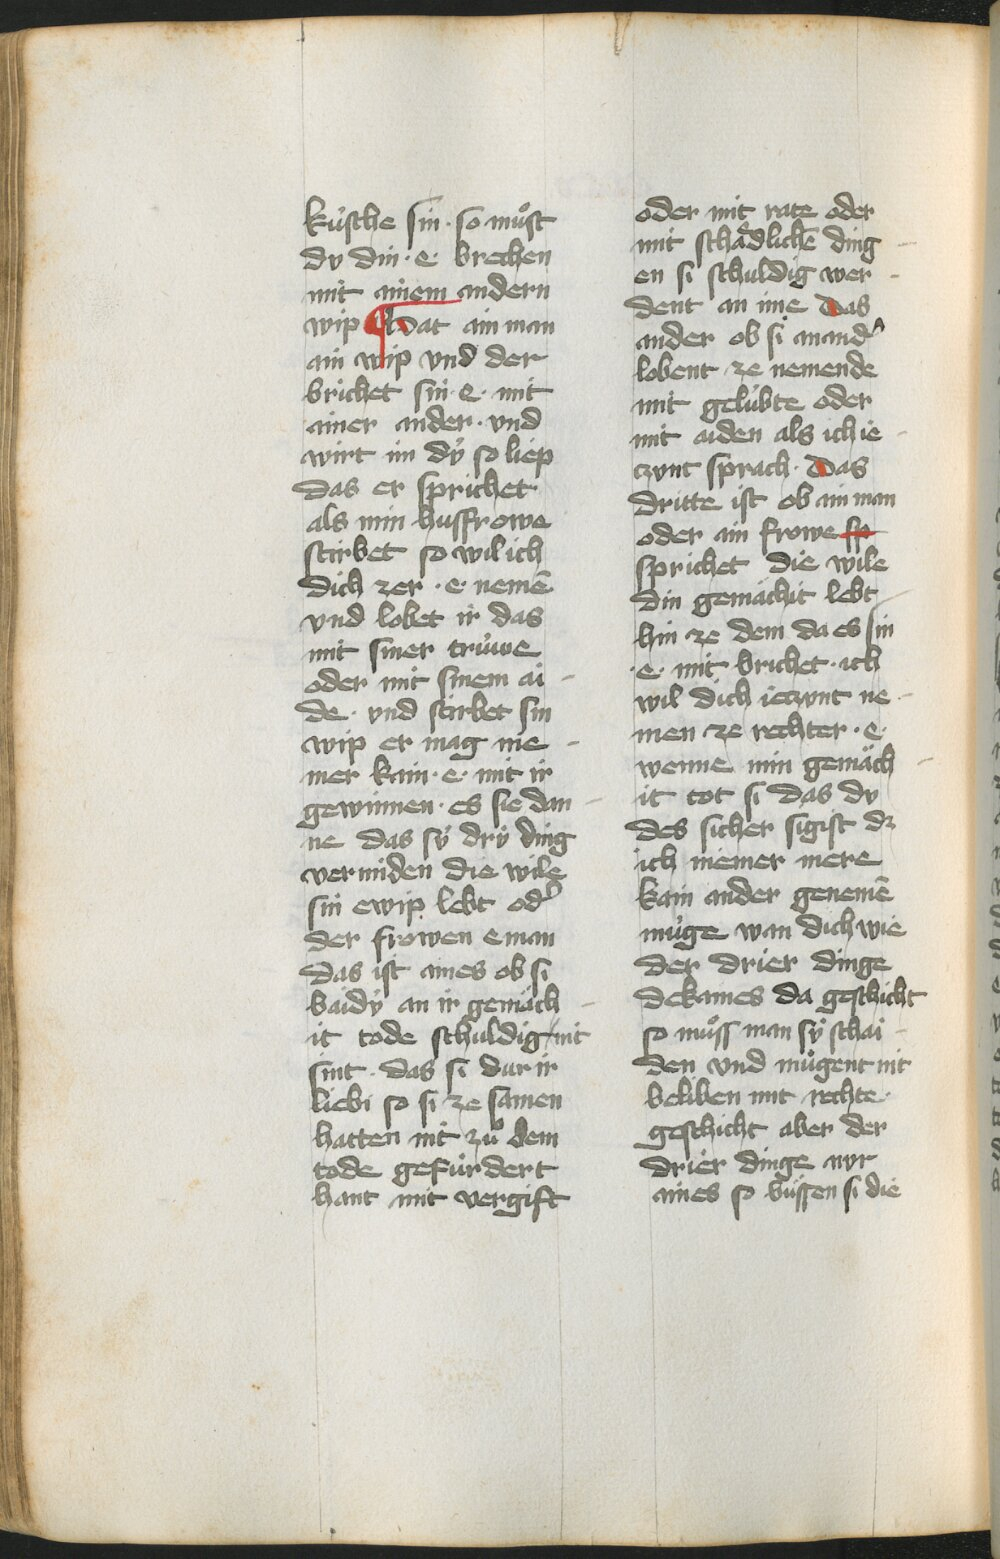 kúsche sin · so muͦst
dv din · e · brechen
mit ainem andern
wip ¶ Hat ain man
ain wip vnd der
brichet sin · e · mit
ainer ander · vnd
wirt im dy̍ so liep
das er sprichet
als min husfrowe
stirbet so wil ich
dich zer · e · nemē
vnd lobet ir das
mit siner trúwe
oder mit sinem ai -
de · vnd stirbet sin
wip er mag nie -
mer kain · e · mit ir
gewinnen · es sie dan -
ne das sy̍ dry̍ ding
vermiden die wile
sin ewip lebt od͛
der frowen eman
das ist aines ob si
baidy̍ an ir gemäch -
it tode schuldig nit
sint · das si dur ir
liebi so si ze samen
hatten nit zuͦ dem
tode gefúrdert
hant mit vergift
oder mit rate oder
mit schädlichē ding -
en si schuldig wer -
dent an ime Das
ander ob si anand͛
lobent ze nemende
mit gelúbte oder
mit aiden als ich ie -
czvnt sprach · Das
dritte ist ob ain man
oder ain frowe sp
sprichet die wile
din gemächit lebt
hin ze dem da es sin
· e · mit brichet · ich
wil dich ieczvnt ne -
men ze rechter · e ·
wenne min gemäch -
it tot si das dv
des sicher sigist dz
ich niemer mere
kain ander genemē
múge wan dich wie
der drier dinge
dekaines da geschicht
so muͦss man sy̍ schai -
den vnd múgent nit
beliben mit rechte ·
geschicht aber der
drier dinge nvr
aines so bússen si die